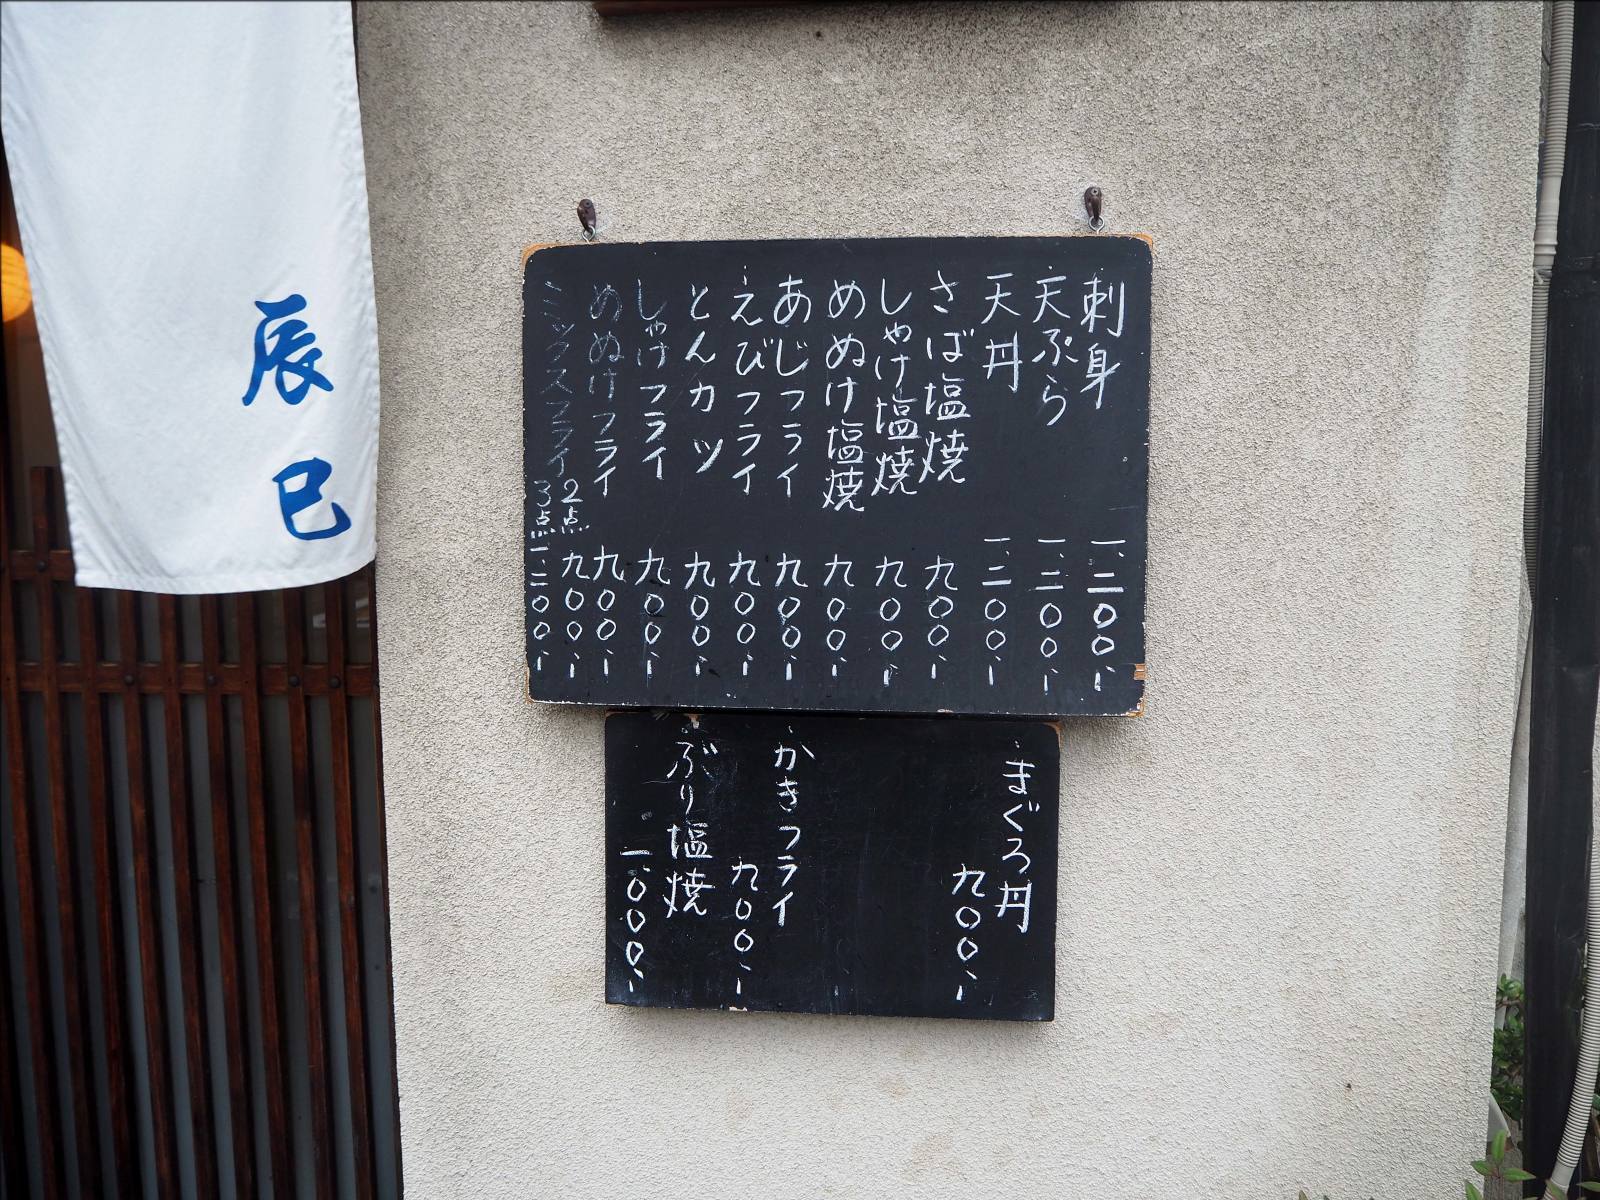 刺身 一、二〇〇、
天ぷら 一、二〇〇、
天丼 一、二〇〇、
さば塩焼 九〇〇、
しゃけ塩焼 九〇〇、
めぬけ塩焼 九〇〇、
あじフライ 九〇〇、
えびフライ 九〇〇、
とんカツ 九〇〇、
しゃけフライ 九〇〇、
めぬけフライ 九〇〇、
ミックスフライ 2点 九〇〇、
3点 一、二〇〇、
まぐろ丼
九〇〇、
かきフライ
九〇〇、
ぶり塩焼
一、〇〇〇、
辰巳